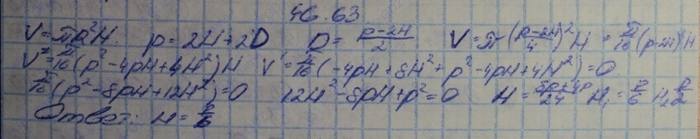 46.63
V=πR²H. p=2H+2D D=\frac{p-2H}{2} V=π(\frac{p-2H}{4})²H=\frac{π}{16}(p-2H)²H
V=\frac{π}{16}(p²-4pH+4H²)H V'=\frac{π}{16}(-4pH+8H²+p²-4pH+4H²)=0
\frac{π}{16}(p²-8pH+12H²)=0 12H²-8pH+p²=0 H=\frac{8p±4p}{24} H₁=\frac{p}{6} H₂\frac{p}{2}
Ответ: H=\frac{p}{6}